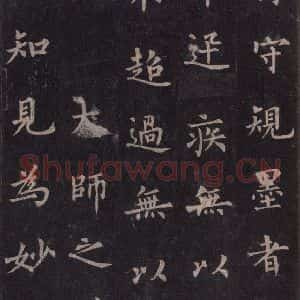 守規墨者
疾無以
超過無以
大師之
知見為妙
Shufawang.CN